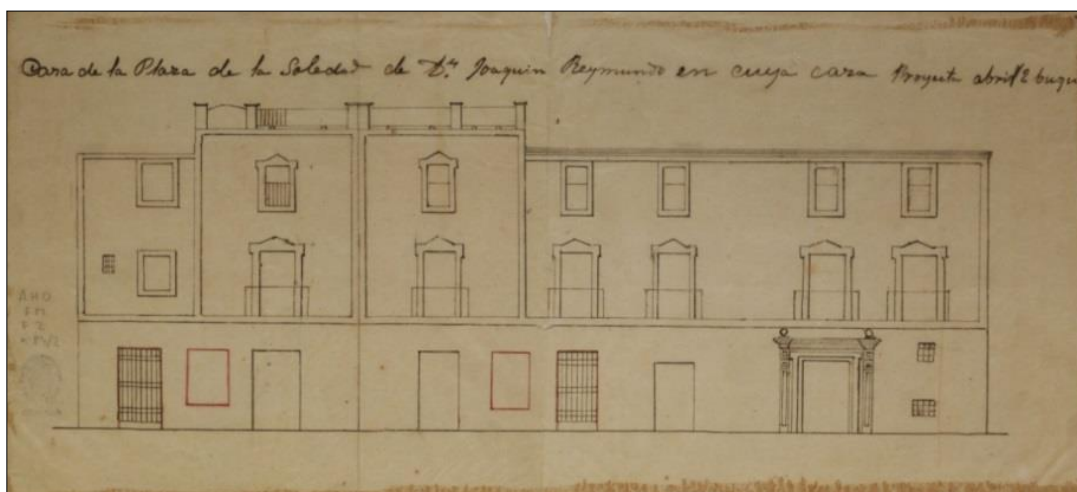 Casa de la Plaza de la Soledad de Dn Joaquin Reymundo en cuya casa Proyecta abrir 2 buqu
AHO
FM